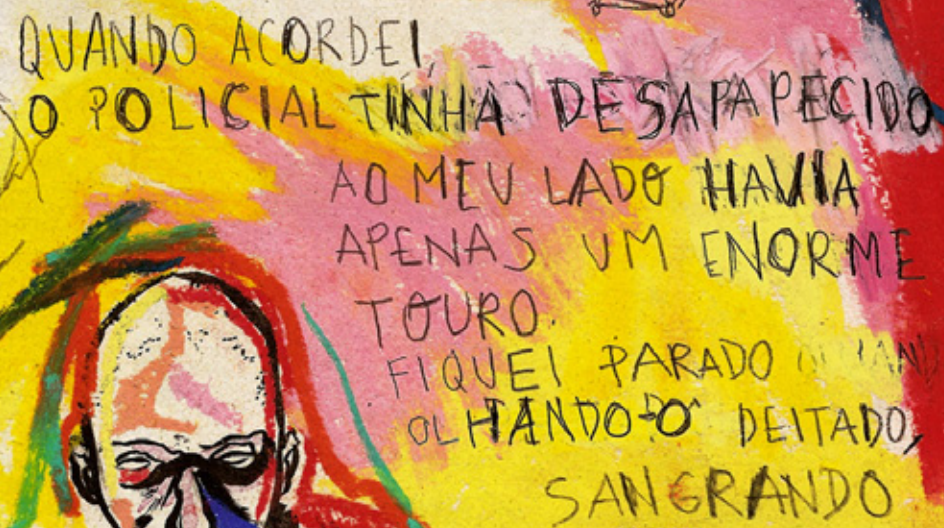 QUANDO ACORDEI,
O POLICIAL TINHA DESAPAPECIDO
AO MEU LADO HAVIA
APENAS UM ENORME
TOURO.
FIQUEI PARADO
OLHANDO-O DEITADO,
SANGRANDO